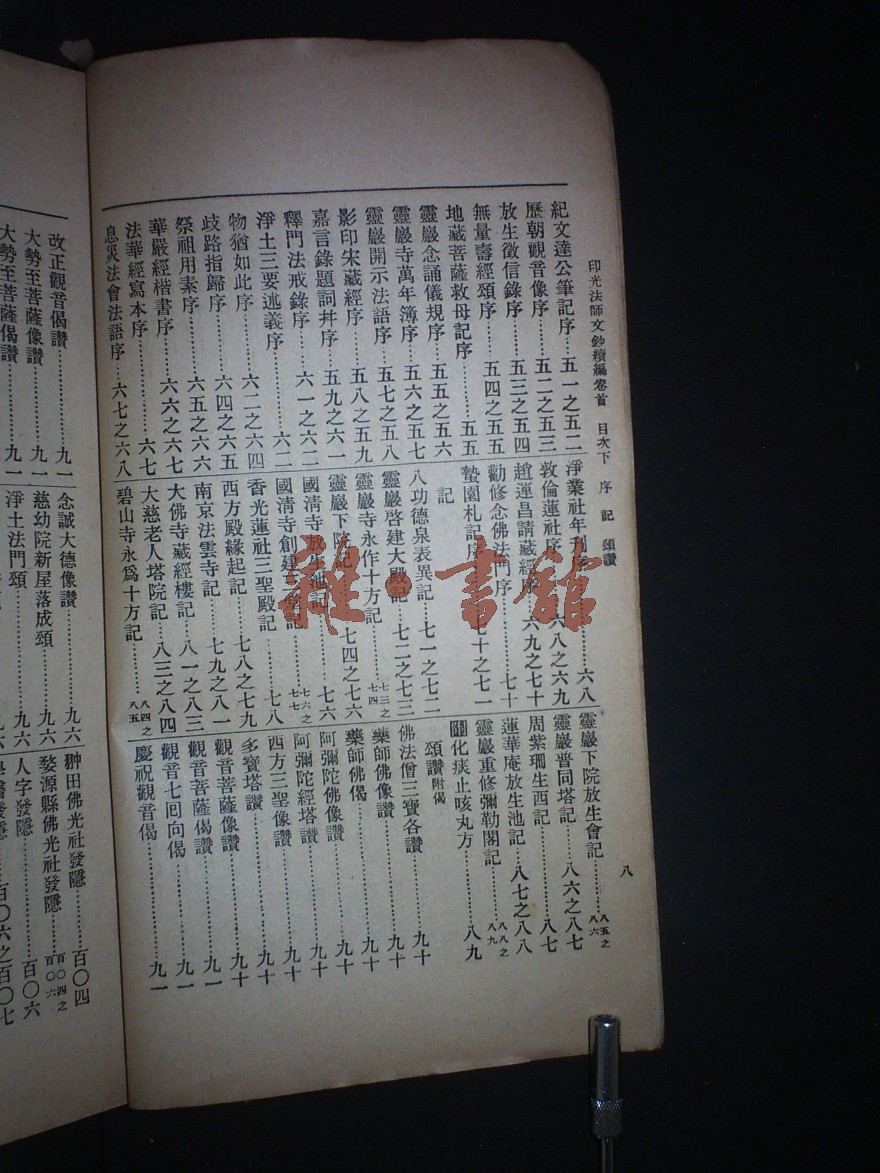 印光法師文鈔續編卷首　目次下　序　記　頌讚　八
紀文達公筆記序……五一之五二
歷朝觀音像序……五二之五三
放生徵信錄序……五三之五四
無量壽經頌序……五四之五五
地藏菩薩救母記序……五五
靈巖念誦儀規序……五五之五六
靈巖寺萬年簿序……五六之五七
靈巖開示法語序……五七之五八
影印宋藏經序……五八之五九
嘉言錄題詞并序……五九之六一
釋門法戒錄序……六一之六二
淨土三要述義序……六二
物猶如此序……六二之六四
歧路指歸序……六四之六五
祭祖用素序……六五之六六
華嚴經楷書序……六六之六七
法華經寫本序……六七
息災法會法語序……六七之六八
淨業社年刊序……六八
敦倫蓮社序……六八之六九
趙運昌請藏經序……六九之七十
勸修念佛法門序……七十
蟄園札記序……七十之七一
記
八功德泉表異記……七一之七二
靈巖啓建大殿記……七二之七三
靈巖寺永作十方記……七三之七四
靈巖下院記……七四之七六
國清寺放生池記……七六
國清寺創建……記……七六之七七
香光蓮社三聖殿記……七八
西方殿緣起記……七八之七九
南京法雲寺記……七九之八一
大佛寺藏經樓記……八一之八三
大慈老人塔院記……八三之八四
碧山寺永爲十方記……八四之八五
靈巖下院放生會記……八五之八六
靈巖普同塔記……八六之八七
周紫珊生西記……八七
蓮華庵放生池記……八七之八八
靈巖重修彌勒閣記……八八之八九
圖化痰止咳丸方……八九
頌讚附偈
佛法僧三寶各讚……九十
藥師佛像讚……九十
藥師佛偈……九十
阿彌陀佛像讚……九十
阿彌陀經塔讚……九十
西方三聖像讚……九十
多寶塔讚……九十
觀音菩薩像讚……九一
觀音菩薩偈讚……九一
觀音七回向偈……九一
慶祝觀音偈……九一
改正觀音偈讚……九一
大勢至菩薩像讚……九一
大勢至菩薩偈讚……九一
念誠大德像讚……九六
慈幼院新屋落成頌……九六
淨土法門頌……九六
翀田佛光社發隱……百〇四
婺源縣佛光社發隱……百〇四之百〇六
人字發隱……百〇六
發隱……百〇六之百〇七
雜·書館